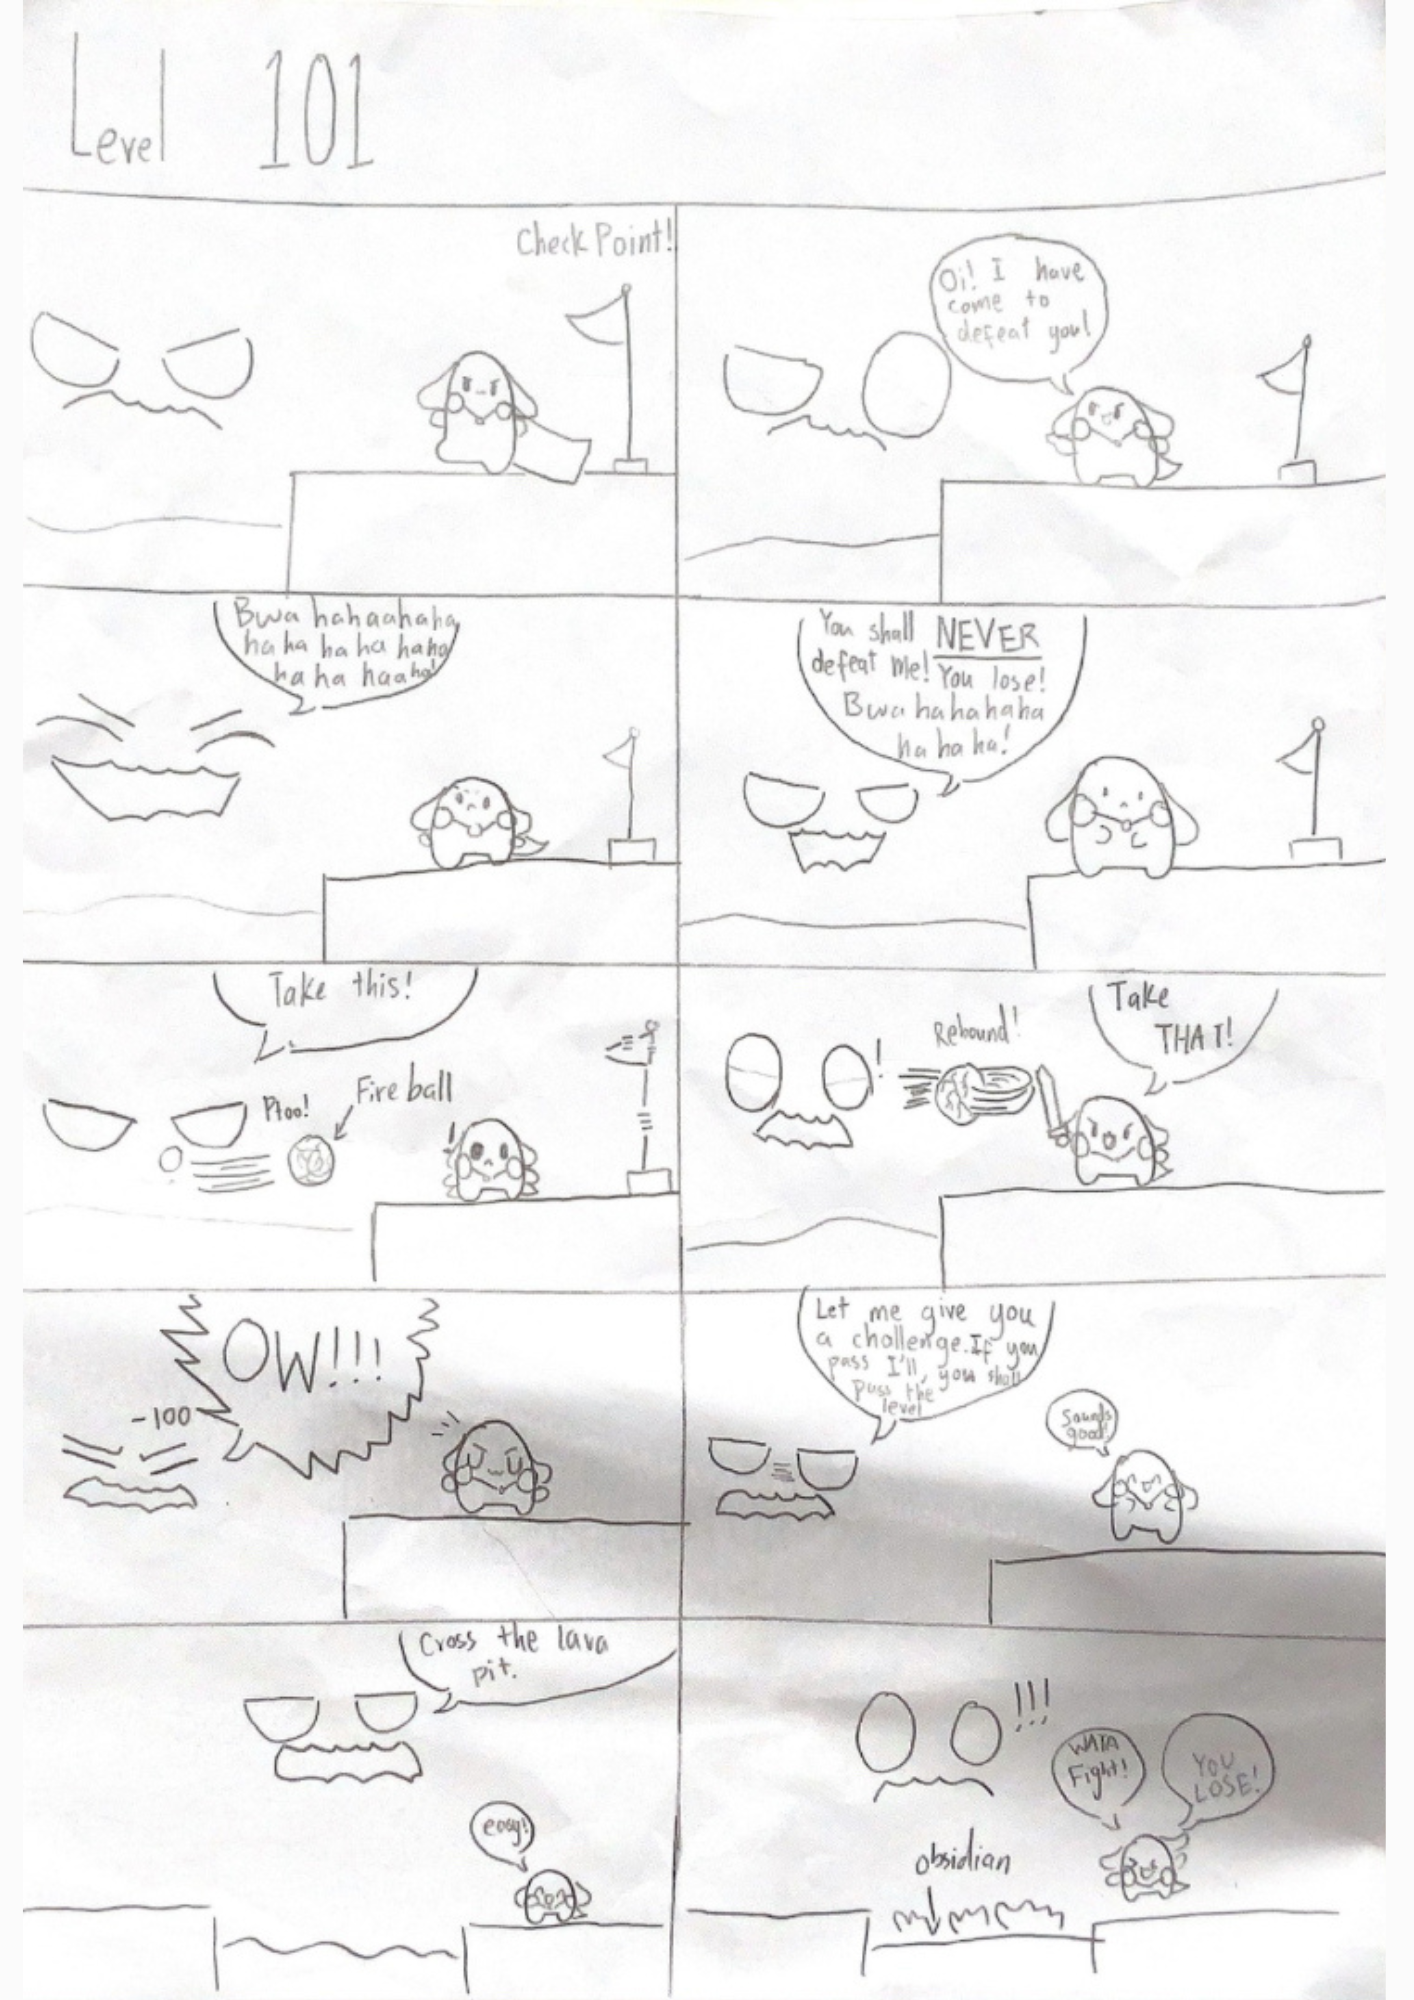 Level 101
Check Point!
Oi! I have
come to
defeat you!
Bwa hahaahaha
ha ha ha ha haha
ha ha haaha!
You shall NEVER
defeat Me! You lose!
Bwa hahahaha
ha ha ha!
Take this!
Ptoo!
Fire ball
!
Rebound!
!
Take
THAT!
OW!!!
-100
Let me give you
a challenge. If you
pass I'll, you shall
pass the
level
Sounds
good!
Cross the lava
pit.
easy!
!!!
WATA
Fight!
YOU
LOSE!
obsidian